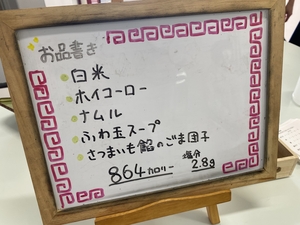 お品書き
白米
ホイコーロー
ナムル
ふわ玉スープ
さつまいも餡のごま団子
864カロリー
塩分
2.8g